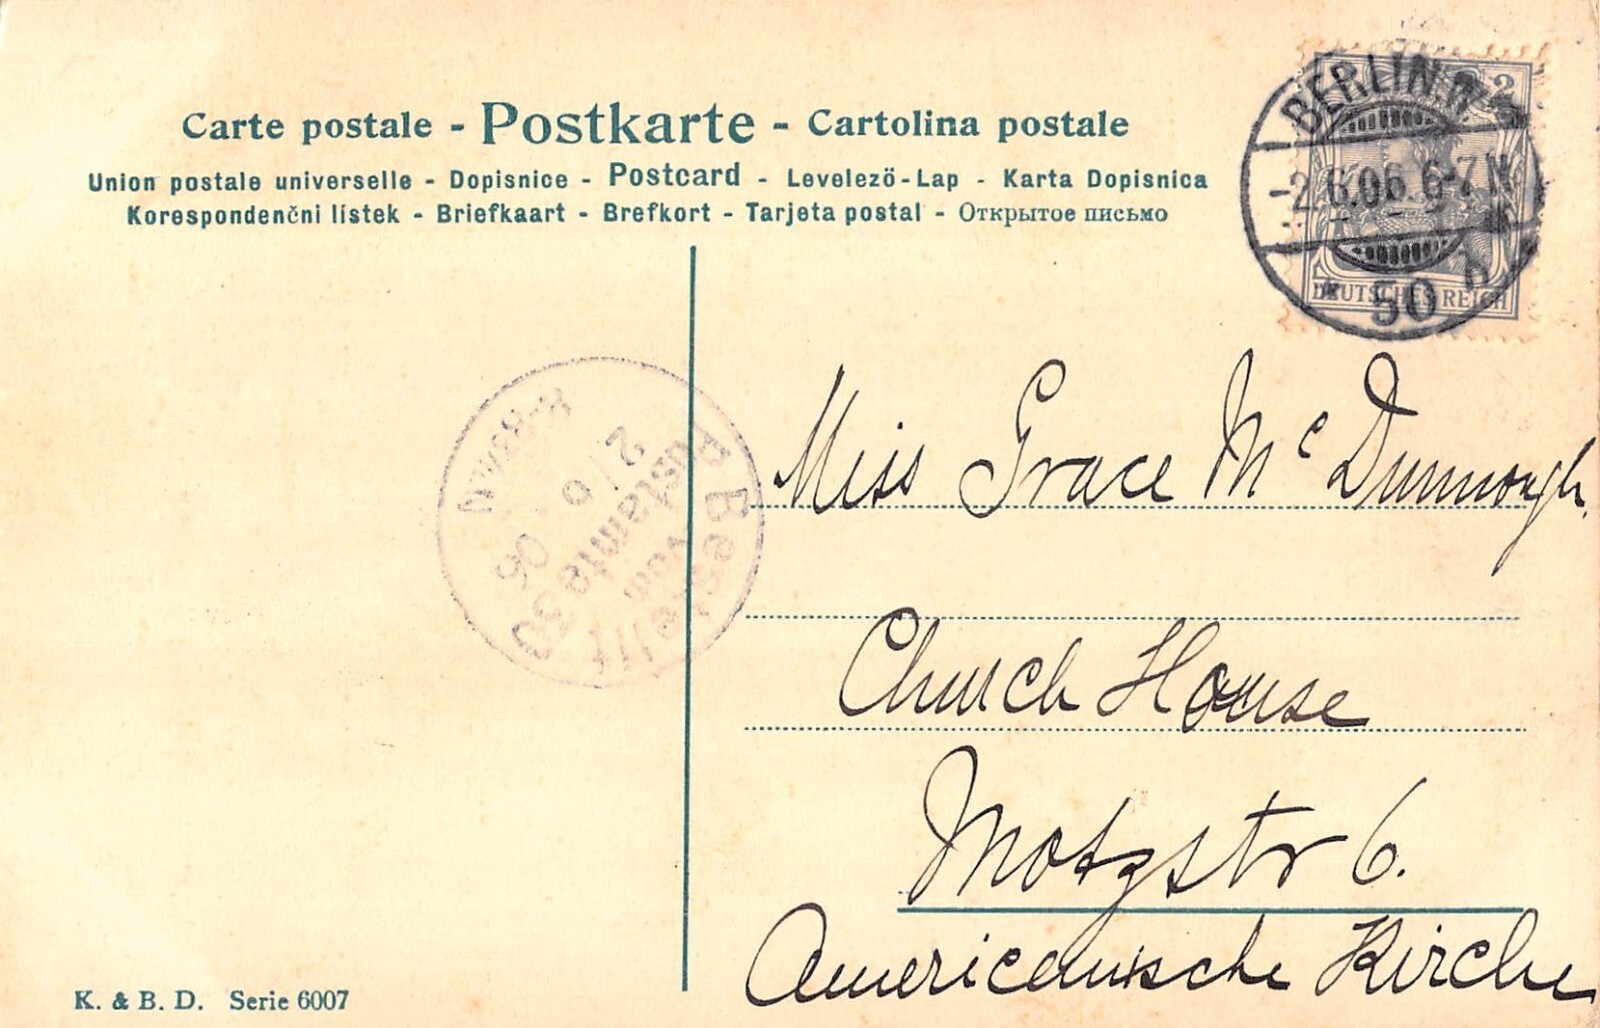 Carte postale - Postkarte - Cartolina postale
Union postale universelle - Dopisnice - Postcard - Levelezö-Lap - Karta Dopisnica
Korespondenčni lístek - Briefkaart - Brefkort - Tarjeta postal - Открытое письмо
BERLIN W
-2.6.06. 6-7 N
50 b
2
DEUTSCHES REICH
Bestellt
vom
Postamte 30
2/6 06
Miss Grace Mc Dunnough.
Church House
Motzstr 6.
Americanische Kirche
K. & B. D. Serie 6007